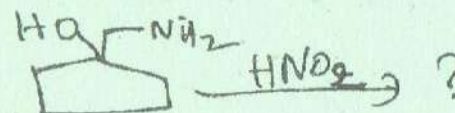 HO NH₂
HNO₂ ?